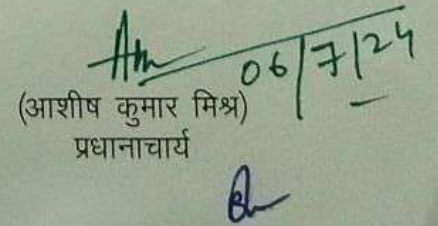 06/7/24
(आशीष कुमार मिश्र)
प्रधानाचार्य